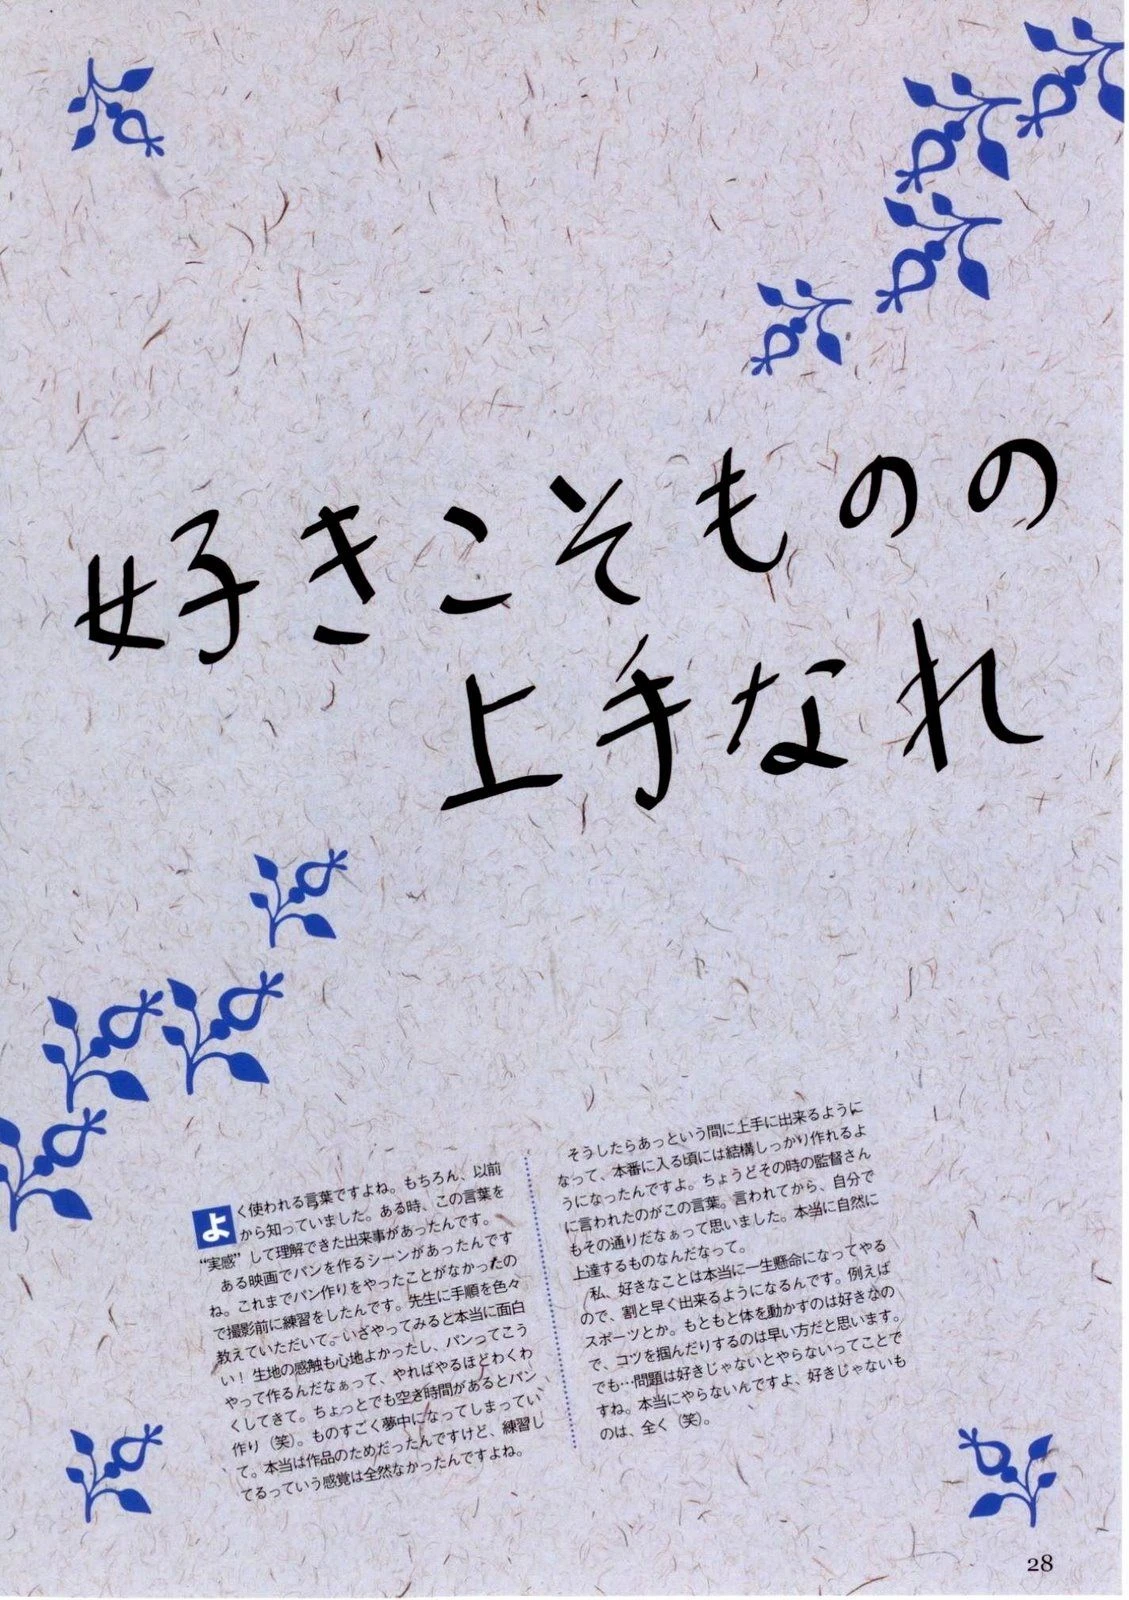 好きこそものの
上手なれ
よく使われる言葉ですよね。もちろん、以前
から知っていました。ある時、この言葉を
“実感”して理解できた出来事があったんです。
ある映画でパンを作るシーンがあったんです
ね。これまでパン作りをやったことがなかったの
で撮影前に練習をしたんです。先生に手順を色々
教えていただいて。いざやってみると本当に面白
い！生地の感触も心地よかったし、パンってこう
やって作るんだなぁって、やればやるほどわくわ
くしてきて。ちょっとでも空き時間があるとパン
作り（笑）。ものすごく夢中になってしまってい
て。本当は作品のためだったんですけど、練習し
てるっていう感覚は全然なかったんですよね。
そうしたらあっという間に上手に出来るように
なって、本番に入る頃には結構しっかり作れるよ
うになったんですよ。ちょうどその時の監督さん
に言われたのがこの言葉。言われてから、自分で
もその通りだなぁって思いました。本当に自然に
上達するものなんだなって。
私、好きなことは本当に一生懸命になってやる
ので、割と早く出来るようになるんです。例えば
スポーツとか。もともと体を動かすのは好きなの
で、コツを掴んだりするのは早い方だと思います。
でも…問題は好きじゃないとやらないってことで
すね。本当にやらないんですよ、好きじゃないも
のは、全く（笑）。
28